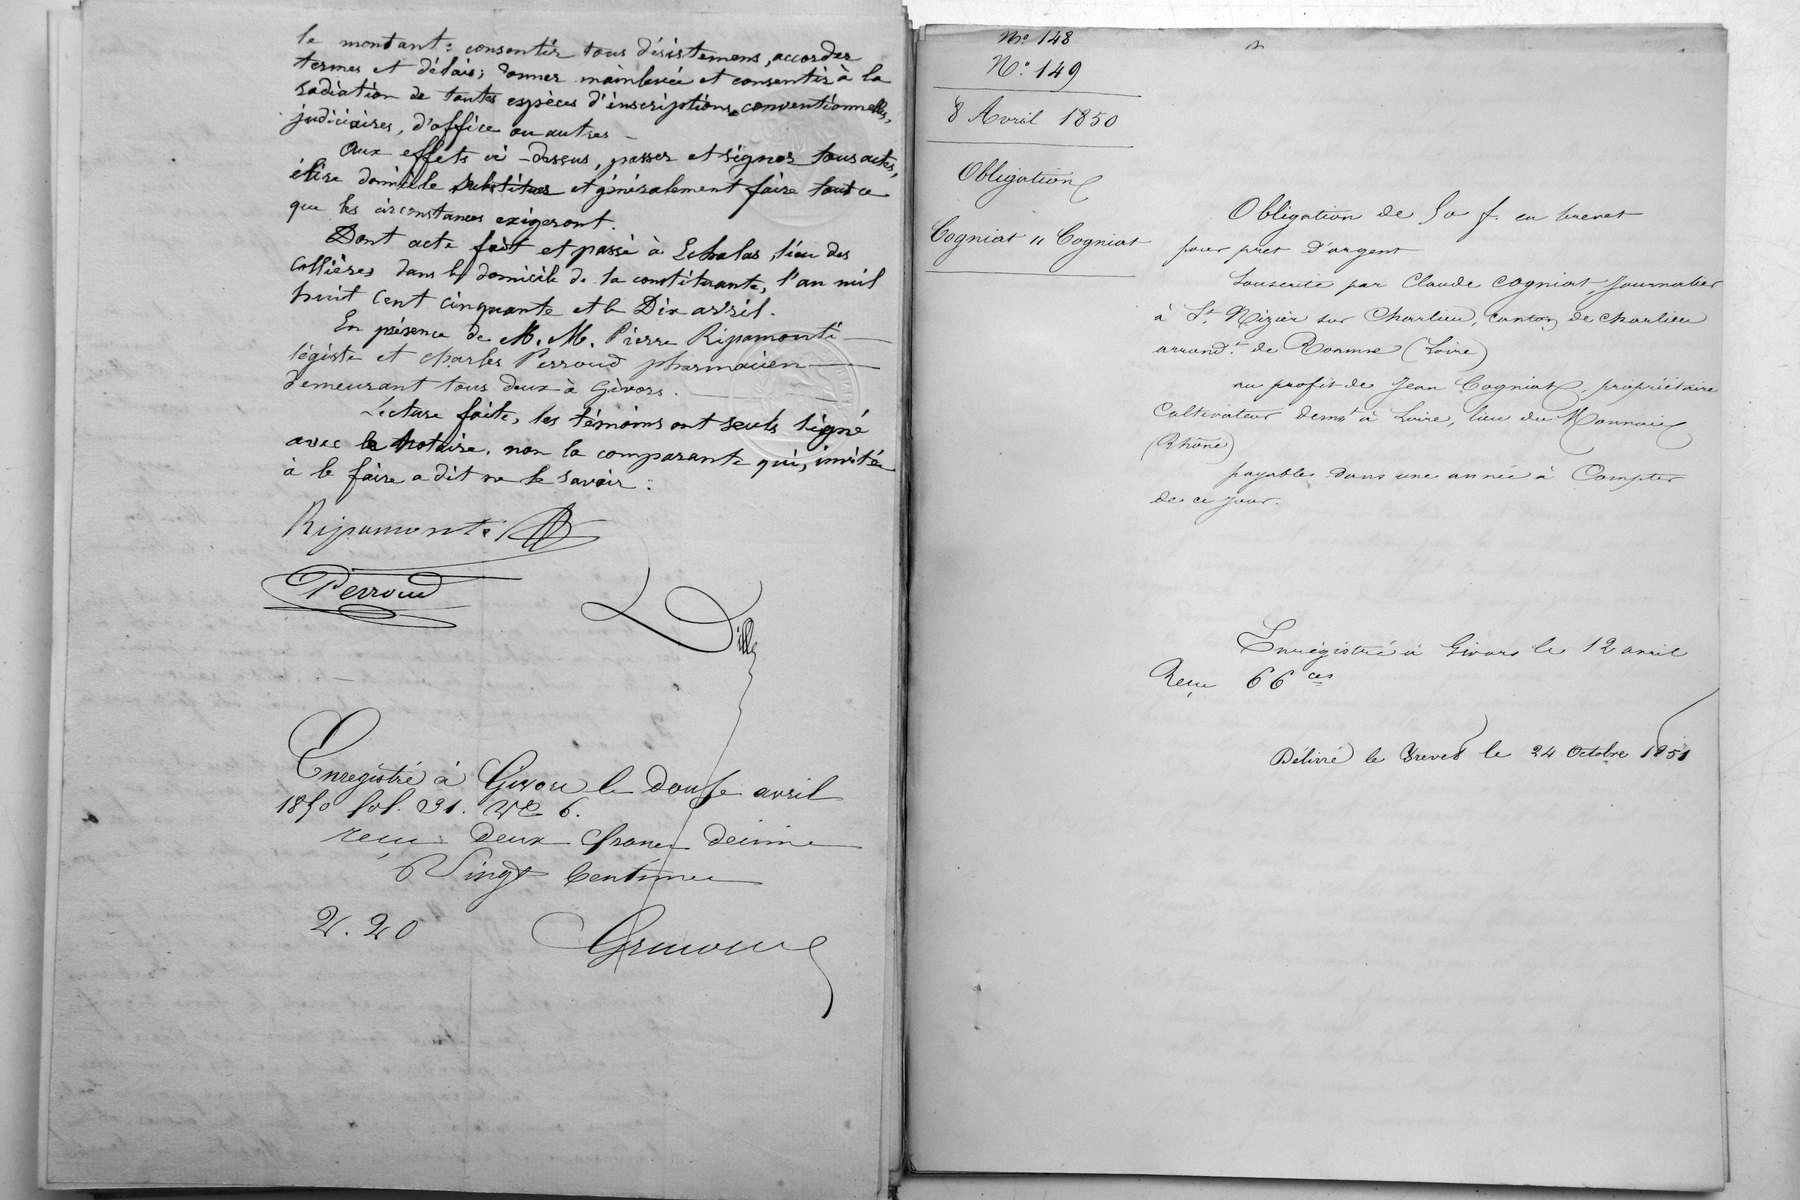 le montant: consentir tous désistemens, accorder
termes et délais; donner mainlevée et consentir à la
radiation de toutes espèces d'inscriptions conventionnelles,
judiciaires, d'office ou autres —
Aux effets ci-dessus, passer et signer tous actes,
élire domicile substituer et généralement faire tout ce
que les circonstances exigeront.
Dont acte fait et passé à Echalas, lieu des
Collières dans le domicile de la constituante, l'an mil
huit cent cinquante et le Dix avril.
En présence de M. M. Pierre Ripamonti —
légiste et charles Perroud pharmacien —
demeurant tous deux à Givors. —
Lecture faite, les témoins ont seuls signé
avec le notaire, non la comparante qui, invitée
à le faire a dit ne le savoir:
Ripamonti
Perroud
Enregistré à Givors le douze avril
1850 fol. 31. Vº C 6.
reçu deux francs décime
Vingt Centimes
2. 20
Nº 148
Nº 149
8 Avril 1850
Obligation
Cogniat à Cogniat
Obligation de 50 f. en brevet
pour pret d'argent
Souscrite par Claude Cogniat, journalier
à St. Nizier sur Charlieu, canton de charlieu
arrond.t de Roanne (Loire)
au profit de Jean Cogniat, propriétaire
Cultivateur demt à Loire, lieu du
(Rhône)
payable dans une année à Compter
de ce jour.
Enregistré à Givors le 12 avril
Reçu 66 ces
Délivré le Brevet le 24 Octobre 1851